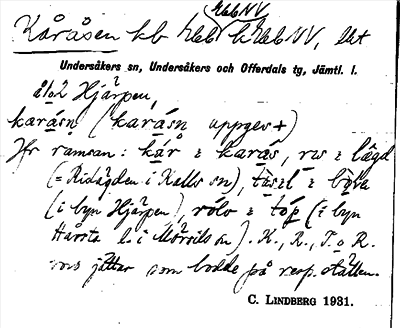 HbbNV
Kåråsen kb Hbb kHbbNV, litt
Undersåkers sn, Undersåkers och Offerdals tg, Jämtl. l.
å1o2 Hjärpen,
karásn (karásn uppges +)
Hfr ramsan: kár i karás, ris i lågd
(= Ridågden i Kalls sn), tàsel i bỳva
(i byn Hjärpen), rólv i tóp (i byn
Hårsta l. i Mörsils sn). K., R., T. o R.
voro jättar som bodde på resp. ställen.
C. LINDBERG 1931.